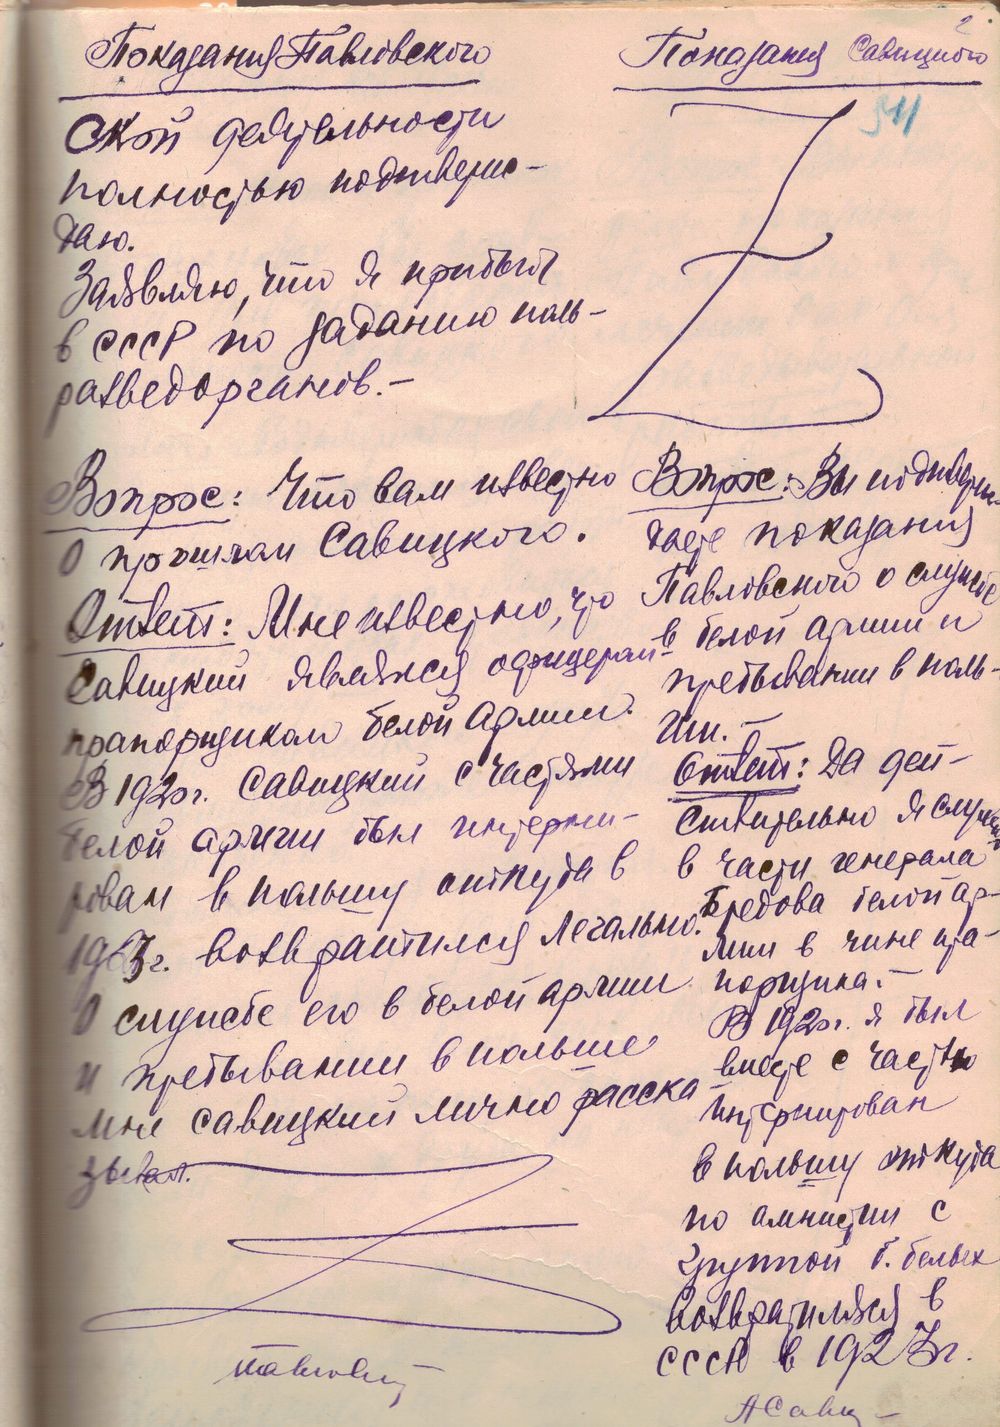 2
Показания Павловского
ской деятельности
полностью подтверж-
даю.
Заявляю, что я прибыл
в СССР по заданию поль-
разведорганов.–
Вопрос: Что вам известно
о прошлом Савицкого.
Ответ: Мне известно, что
Савицкий являлся офицером-
прапорщиком белой армии.
В 1920г. Савицкий с частями
белой армии был интерни-
рован в польшу откуда в
1923г. возвратился легально.
О службе его в белой армии
и пребывании в польше
мне Савицкий лично расска
зывал.
Павловск
Показания Савицкого
341
Вопрос: Вы подтверж-
даете показания
Павловского о службе
в белой армии и
пребывании в поль-
ши.–
Ответ: Да дей-
ствительно я служил
в части генерала
Бредова белой ар-
мии в чине пра-
порщика.–
В 1920г. я был
вместе с частью
интернирован
в польшу откуда
по амнистии с
группой б. белых
возвратился в
СССР в 1923г.
АСавиц